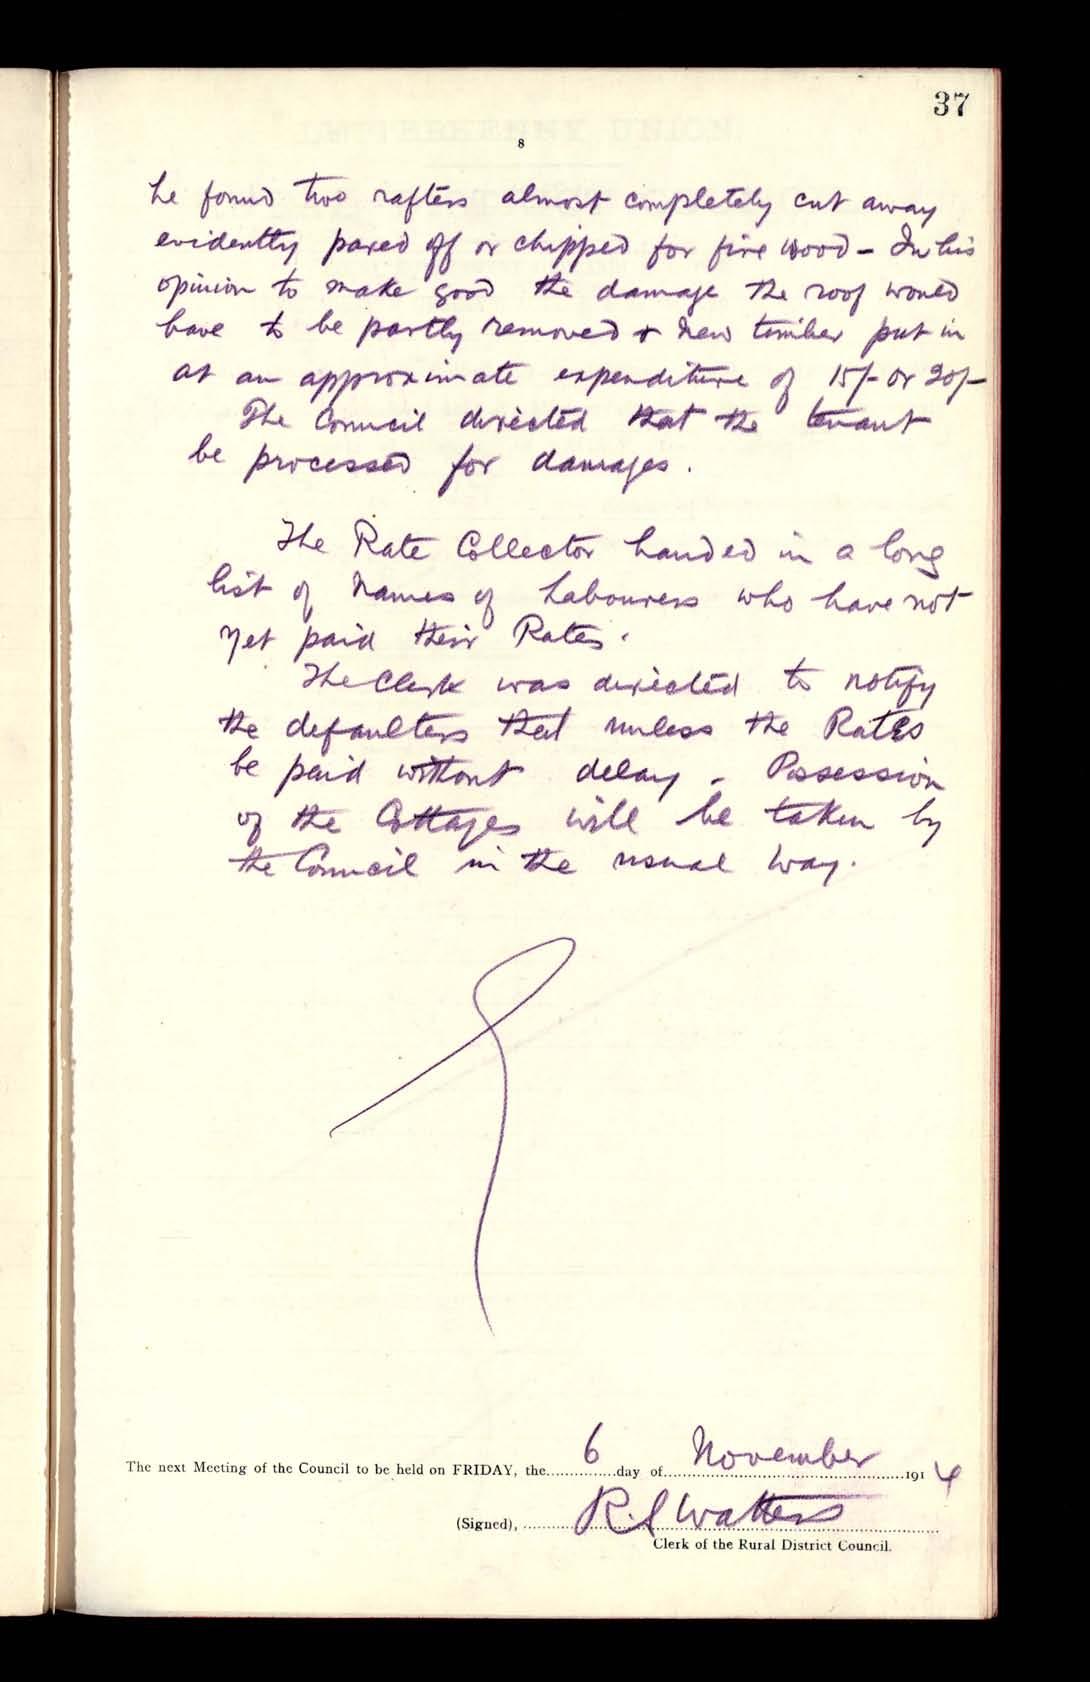 37
8
he found two rafters almost completely cut away
evidently pared off or chipped for fire wood - In his
opinion to make good the damage the roof would
have to be partly removed & new timber put in
at an approximate expenditure of 15/- or 20/-
The Council directed that the tenant
be processed for damages.
The Rate Collector handed in a long
list of names of Labourers who have not
yet paid their Rates.
The Clerk was directed to notify
the defaulters that unless the Rates
be paid without delay - Possession
of the Cottages will be taken by
the Council in the usual way.
The next Meeting of the Council to be held on FRIDAY, the 6 day of November 1914
(Signed), R. S. Watters
Clerk of the Rural District Council.